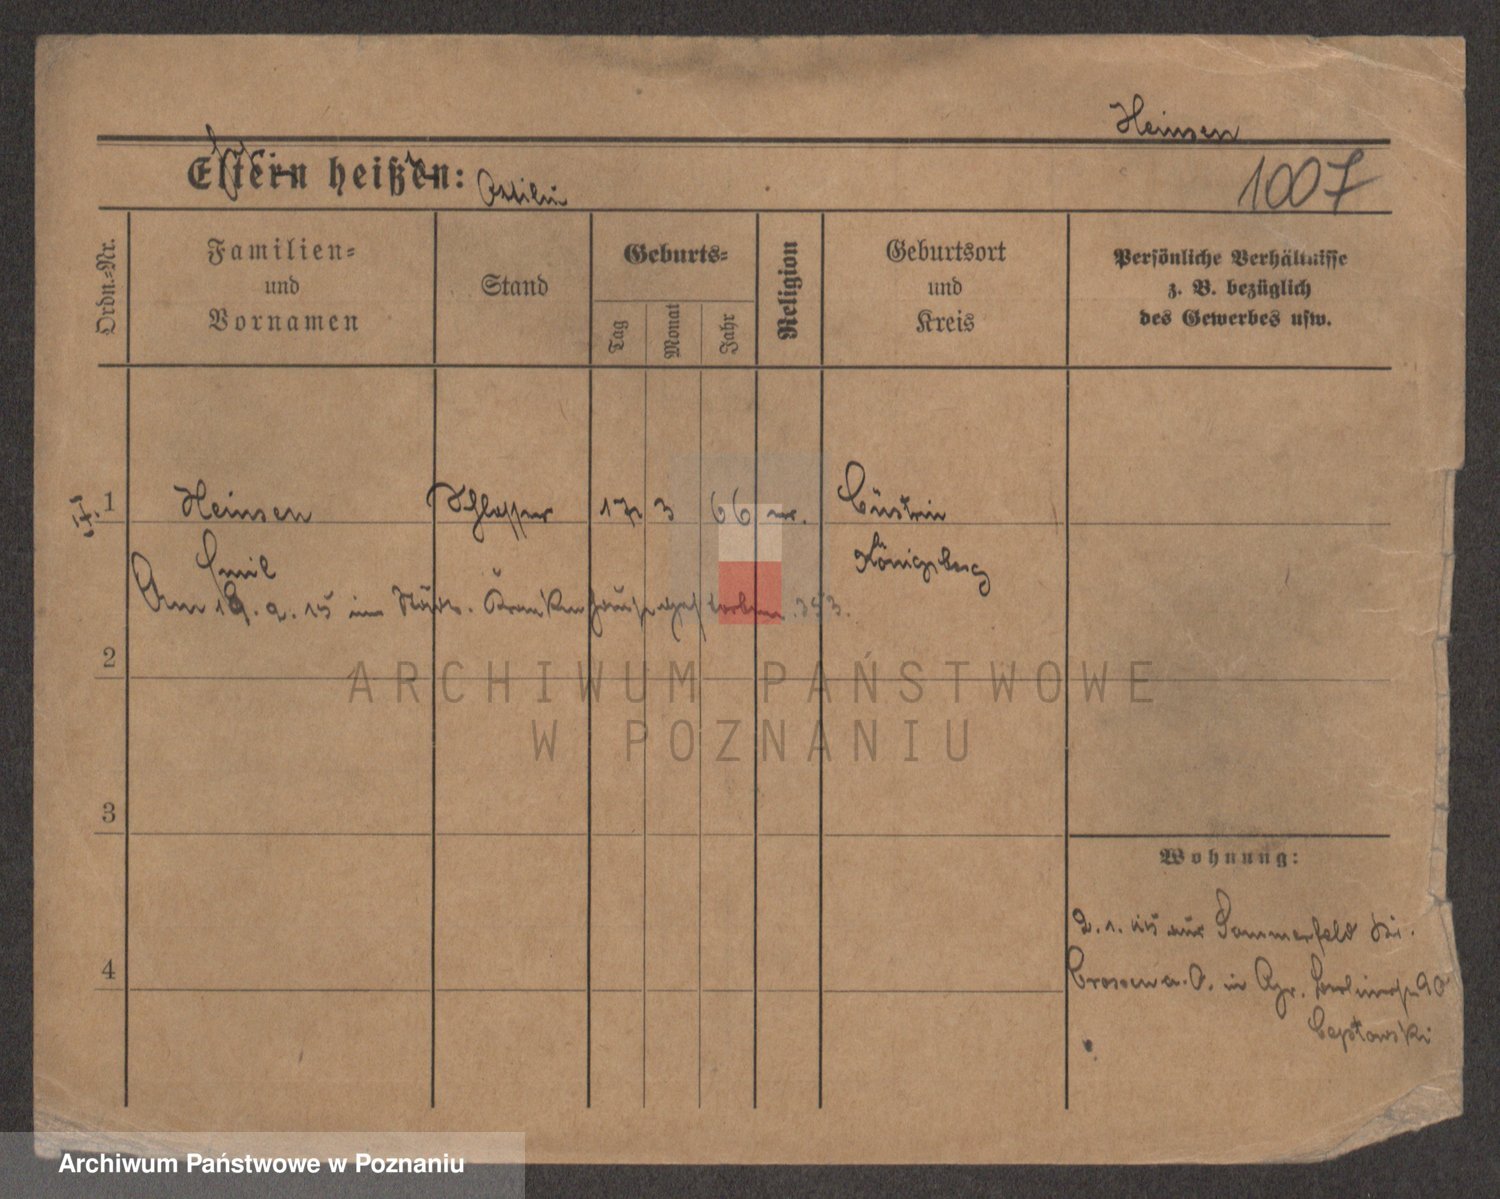 Heinsen
Eltern heißen:
1007
Ordn.-Nr.
Familien-
und
Vornamen
Stand
Geburts-
Tag
Monat
Jahr
Religion
Geburtsort
und
Kreis
Persönliche Verhältnisse
z. B. bezüglich
des Gewerbes usw.
1
Heinsen
Schlosser
17
3
66
Cüstrin
Emil
Königsberg
Am 19. 2. 15 im Städt. Krankenhause gestorben 353.
2
ARCHIWUM PAŃSTWOWE
W POZNANIU
3
Wohnung:
2. 1. 15 aus Sommerfeld
4
Crossen a. O. in
Archiwum Państwowe w Poznaniu